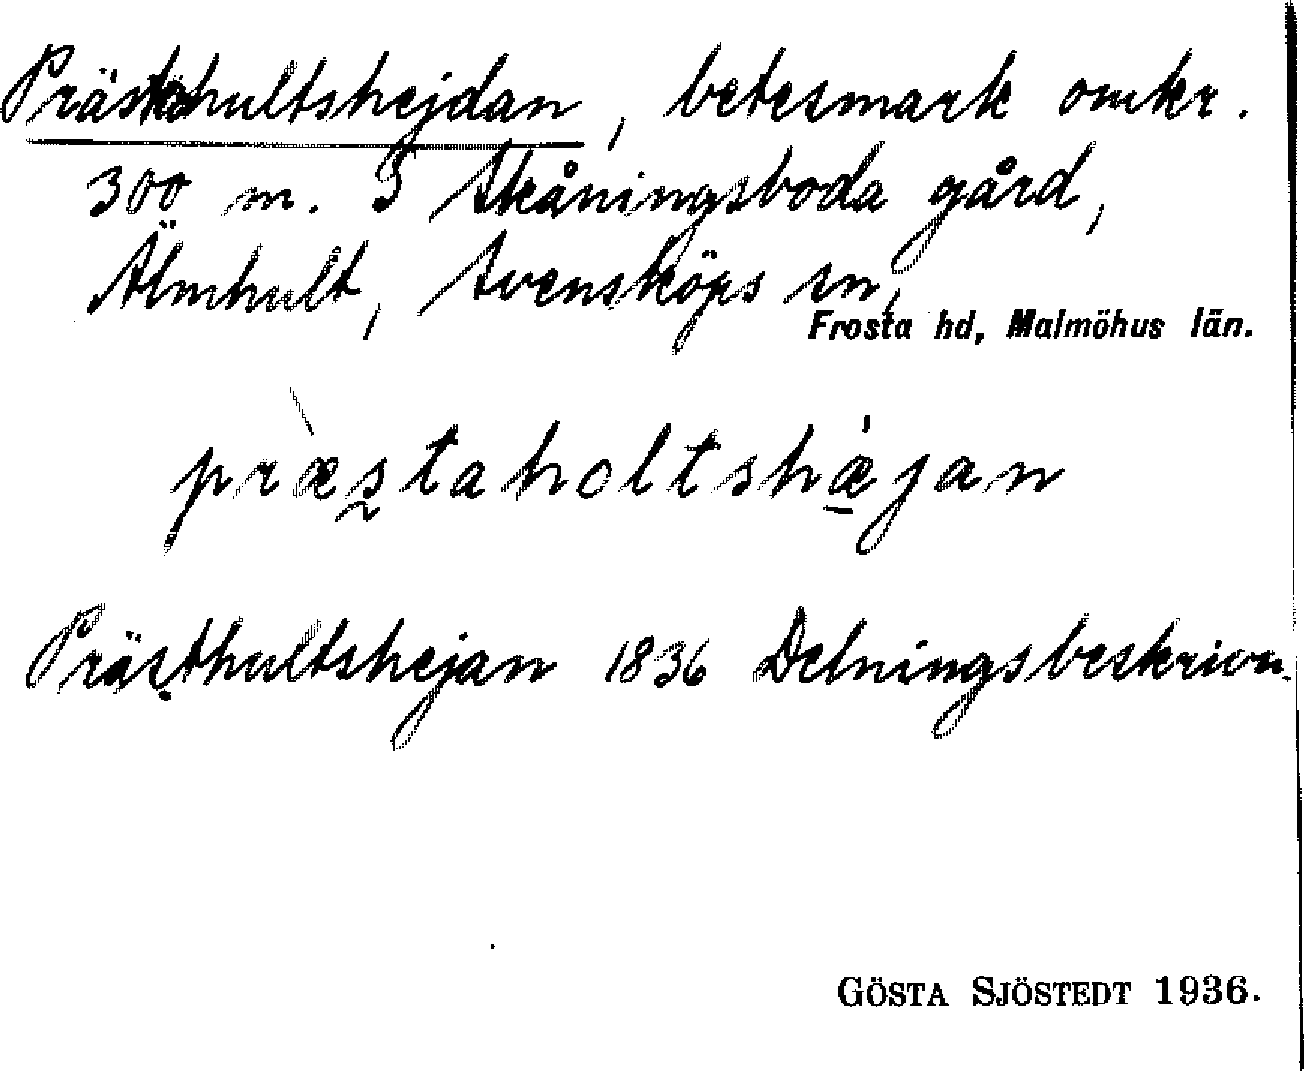 Prästahultshejdan, betesmark omkr.
300 m. S Skåningsboda gård,
Älmhult, Svensköps sn,
Frosta hd, Malmöhus län.
præstaholtshæjan
Prästhultshejan 1836 Delningsbeskrivn.
GÖSTA SJÖSTEDT 1936.